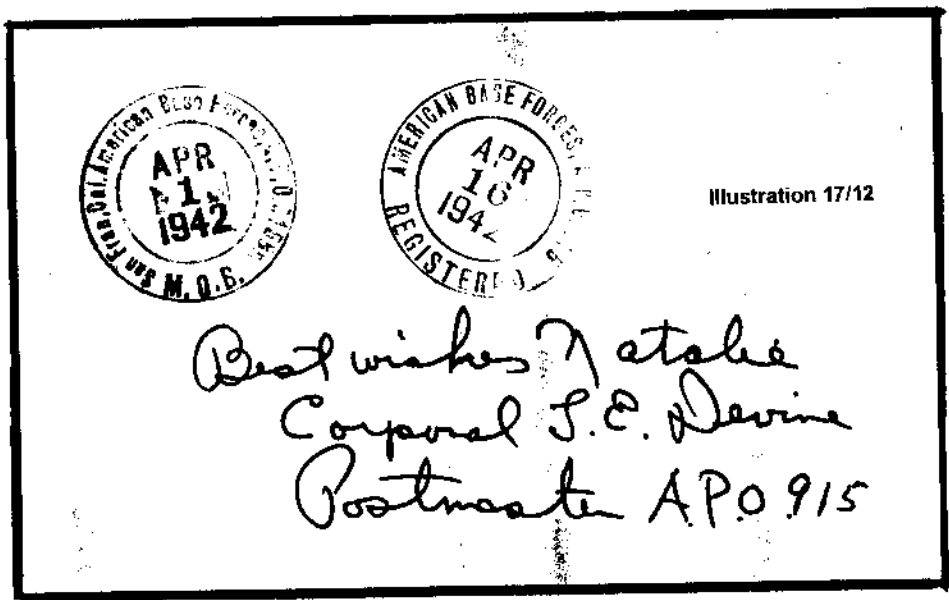 San Fran, Cal. American Base Forces,
APR
1
1942
M.O.B.
AMERICAN BASE FORCES,
APR
16
194
REGISTERED
Illustration 17/12
Best wishes Natalie
Corporal S.E. Devine
Postmaster A.P.O 915